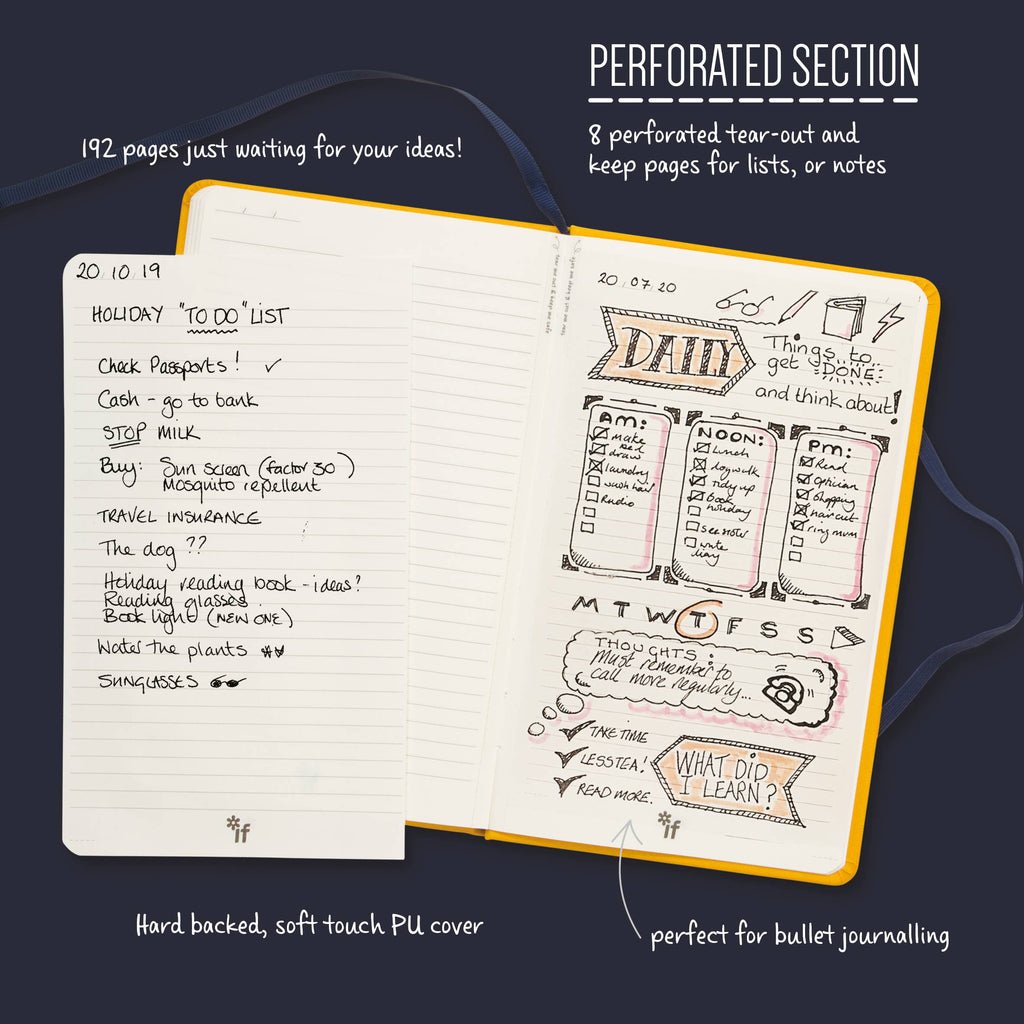 PERFORATED SECTION
8 perforated tear-out and
keep pages for lists, or notes
192 pages just waiting for your ideas!
20 10 19
HOLIDAY "TO DO" LIST
Check Passports! ✓
Cash - go to bank
STOP MILK
Buy: Sun screen (factor 30)
Mosquito repellent
TRAVEL INSURANCE
The dog ??
Holiday reading book - ideas?
Reading glasses.
Book light (NEW ONE)
Water the plants
SUNGLASSES
*if
tear me out & keep me safe
tear me out & keep me safe
20 07 20
DAILY
Things to
get DONE
and think about!
AM:
make
bed
draw
laundry
wash hair
Radio
NOON:
Lunch
dogwalk
Tidy up
Book
holiday
write
PM:
Read
Optician
Shopping
haircut
ring mum
M T W T F S S
THOUGHTS:
Must remember to
call more regularly...
TAKE TIME
LESS TEA!
READ MORE.
WHAT DID
I LEARN?
*if
Hard backed, soft touch PU cover
perfect for bullet journalling